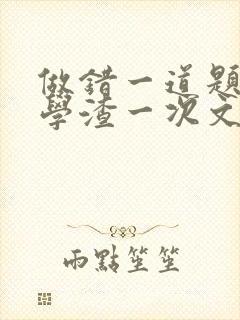 做錯一道題
學渣一次文
雨點笙笙